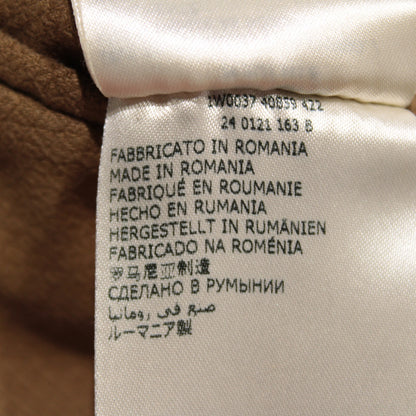 1W0037 40859 422
24 0121 163 B
FABBRICATO IN ROMANIA
MADE IN ROMANIA
FABRIQUÉ EN ROUMANIE
HECHO EN RUMANIA
HERGESTELLT IN RUMÄNIEN
FABRICADO NA ROMÉNIA
罗马尼亚制造
СДЕЛАНО В РУМЫНИИ
صنع في رومانيا
ルーマニア製